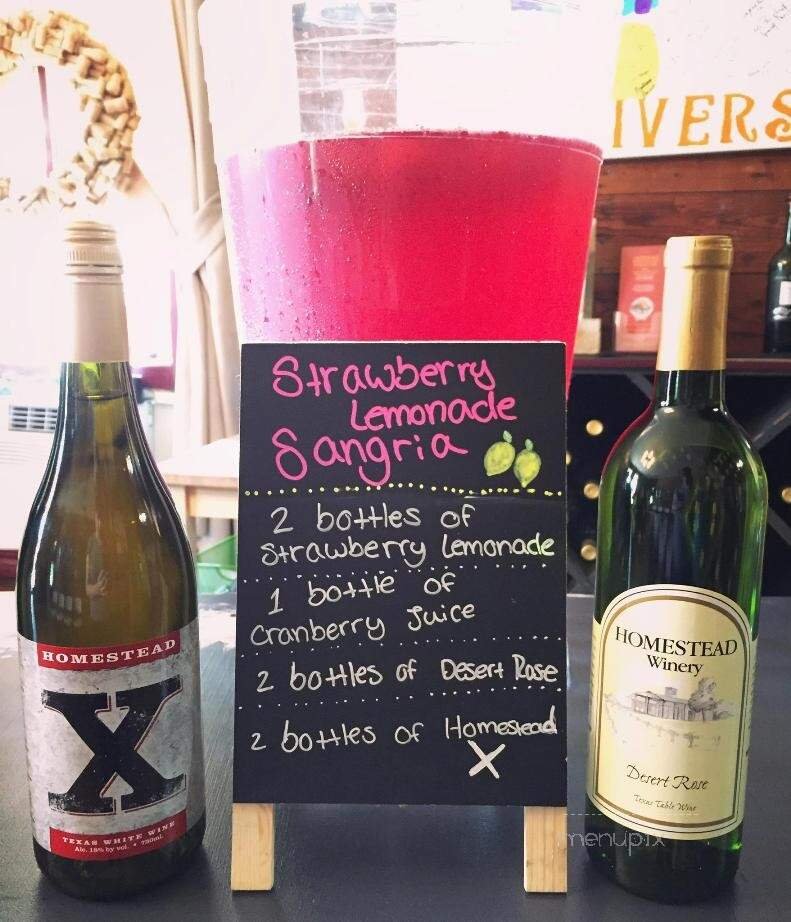 IVERS
Strawberry
Lemonade
Sangria
2 bottles of
Strawberry Lemonade
1 bottle of
Cranberry Juice
2 bottles of Desert Rose
2 bottles of Homestead
X
HOMESTEAD
X
TEXAS WHITE WINE
Alc. 15% by vol. • 750ml.
HOMESTEAD
Winery
Desert Rose
Texas Table Wine
menupix